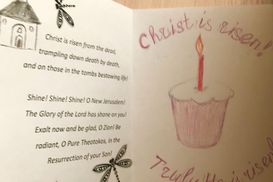 Christ is risen from the dead,
trampling down death by death,
and on those in the tombs bestowing life!
Shine! Shine! Shine! O New Jerusalem!
The Glory of the Lord has shone on you!
Exalt now and be glad, O Zion! Be
radiant, O Pure Theotokos, in the
Resurrection of your Son!
Christ is risen!
Truly He is risen!